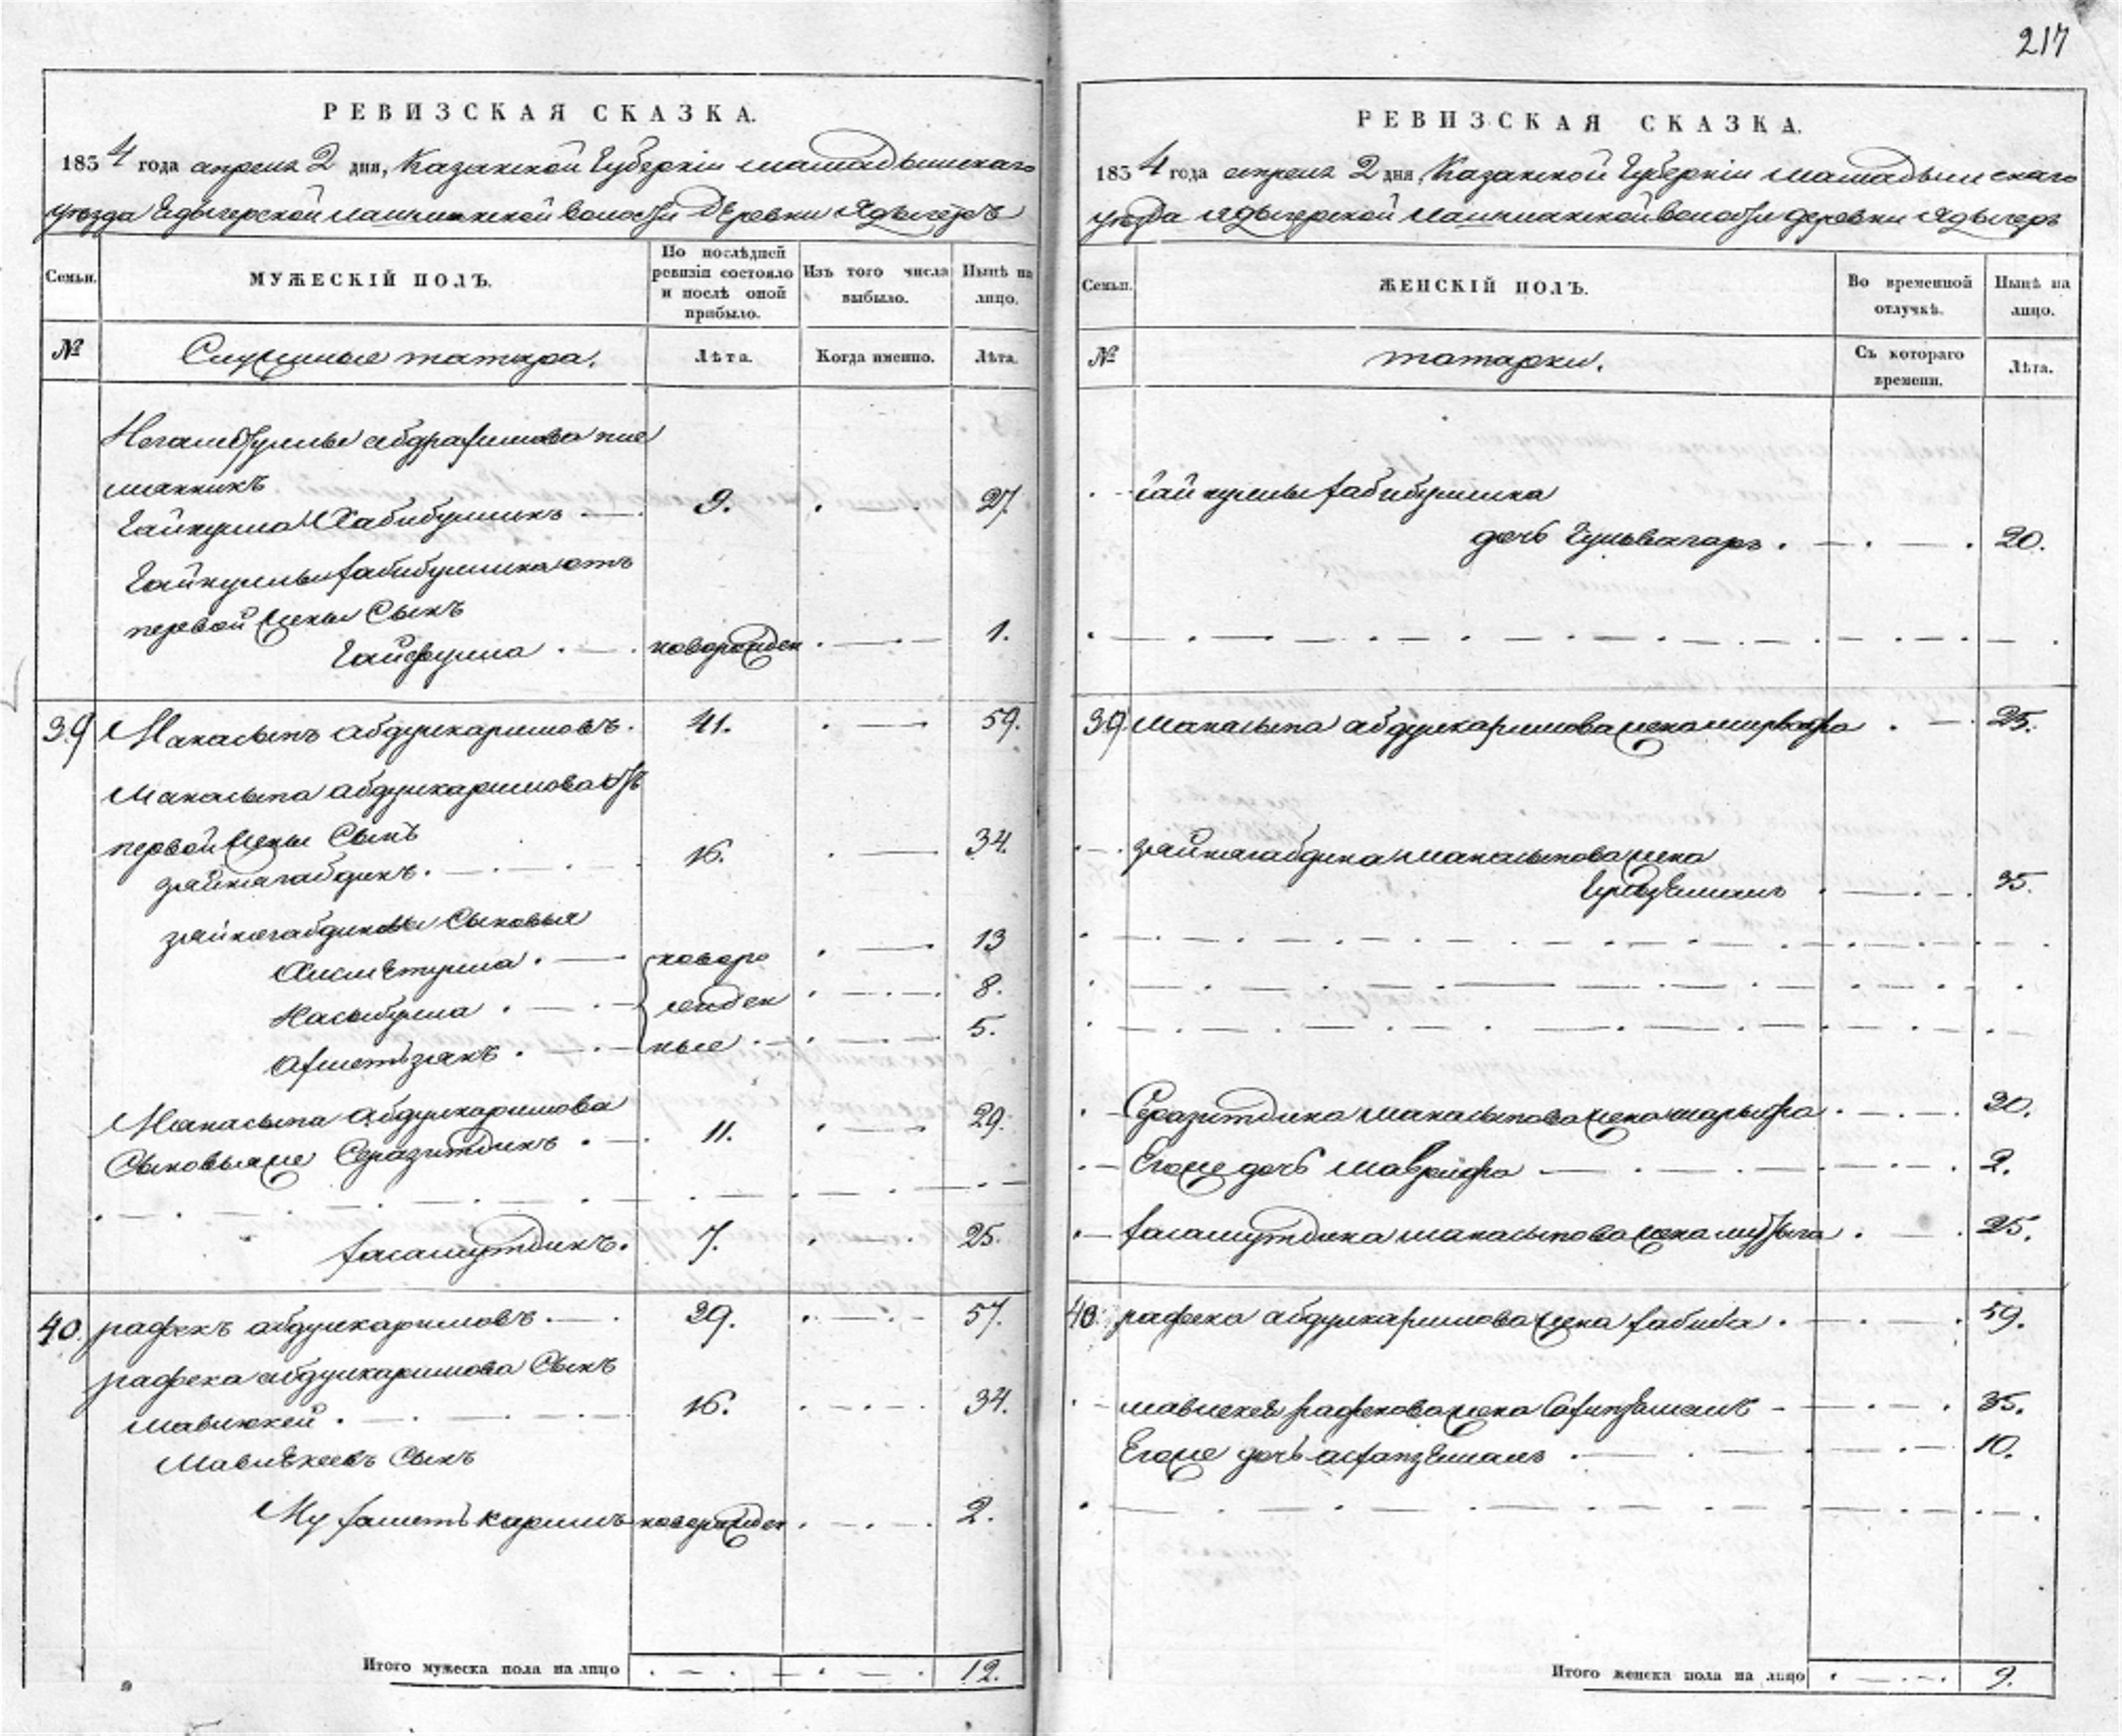 217
РЕВИЗСКАЯ СКАЗКА.
1854 года апреля 2 дня, Казанской Губернiи мамадышскаго
уѣзда Ядыгерской волости Деревни Ядыгерь
Семьи. МУЖЕСКIЙ ПОЛЪ. По послѣдней ревизiи состояло и послѣ оной прибыло. Изъ того числа выбыло. Нынѣ на лицо.
№ Служилые татара. Лѣта. Когда именно. Лѣта.
абдрахимова пле
мянникъ
Гайнулла Хабибуллинъ 9. 27.
Гайнуллы хабибуллина отъ
первой жены Сынъ
Гайфулла новорожден 1.
39 Манасыпъ абдулкаримовъ. 41. 59.
Манасыпа абдулкаримова отъ
первой жены Сынъ
зяйнагабдинъ. 16. 34.
зяйнагабдиновы Сыновья
Хисметулла новоро 13
Насыбулла жден 8.
Ахметьзянъ ные 5.
Манасыпа абдулкаримова
Сыновья же Серазитдинъ 11. 29.
халамутдинъ. 7. 25.
40. рафекъ абдулкаримовъ. 39. 57.
рафека абдулкаримова Сынъ
мавлюкей 16. 34.
Мавлекеевъ Сынъ
Мухаметькаримъ новорожден 2.
Итого мужеска пола на лицо 12.
РЕВИЗСКАЯ СКАЗКА.
1854 года апреля 2 дня, Казанской Губернiи мамадышскаго
уѣзда Ядыгерской волости деревни Ядыгерь
Семьи. ЖЕНСКIЙ ПОЛЪ. Во временной отлучкѣ. Нынѣ на лицо.
№ татарки. Съ котораго времени. Лѣта.
Гайнуллы хабибуллина
дочь 20.
39. Манасыпа абдулкаримова жена 25.
зяйнагабдина манасыпова жена
35.
Серазитдина манасыпова жена 30.
Егоже дочь 2.
халамутдина манасыпова жена 25.
40. рафека абдулкаримова жена хабиба 59.
мавлекея рафекова жена 35.
Егоже дочь 10.
Итого женска пола на лицо 9.